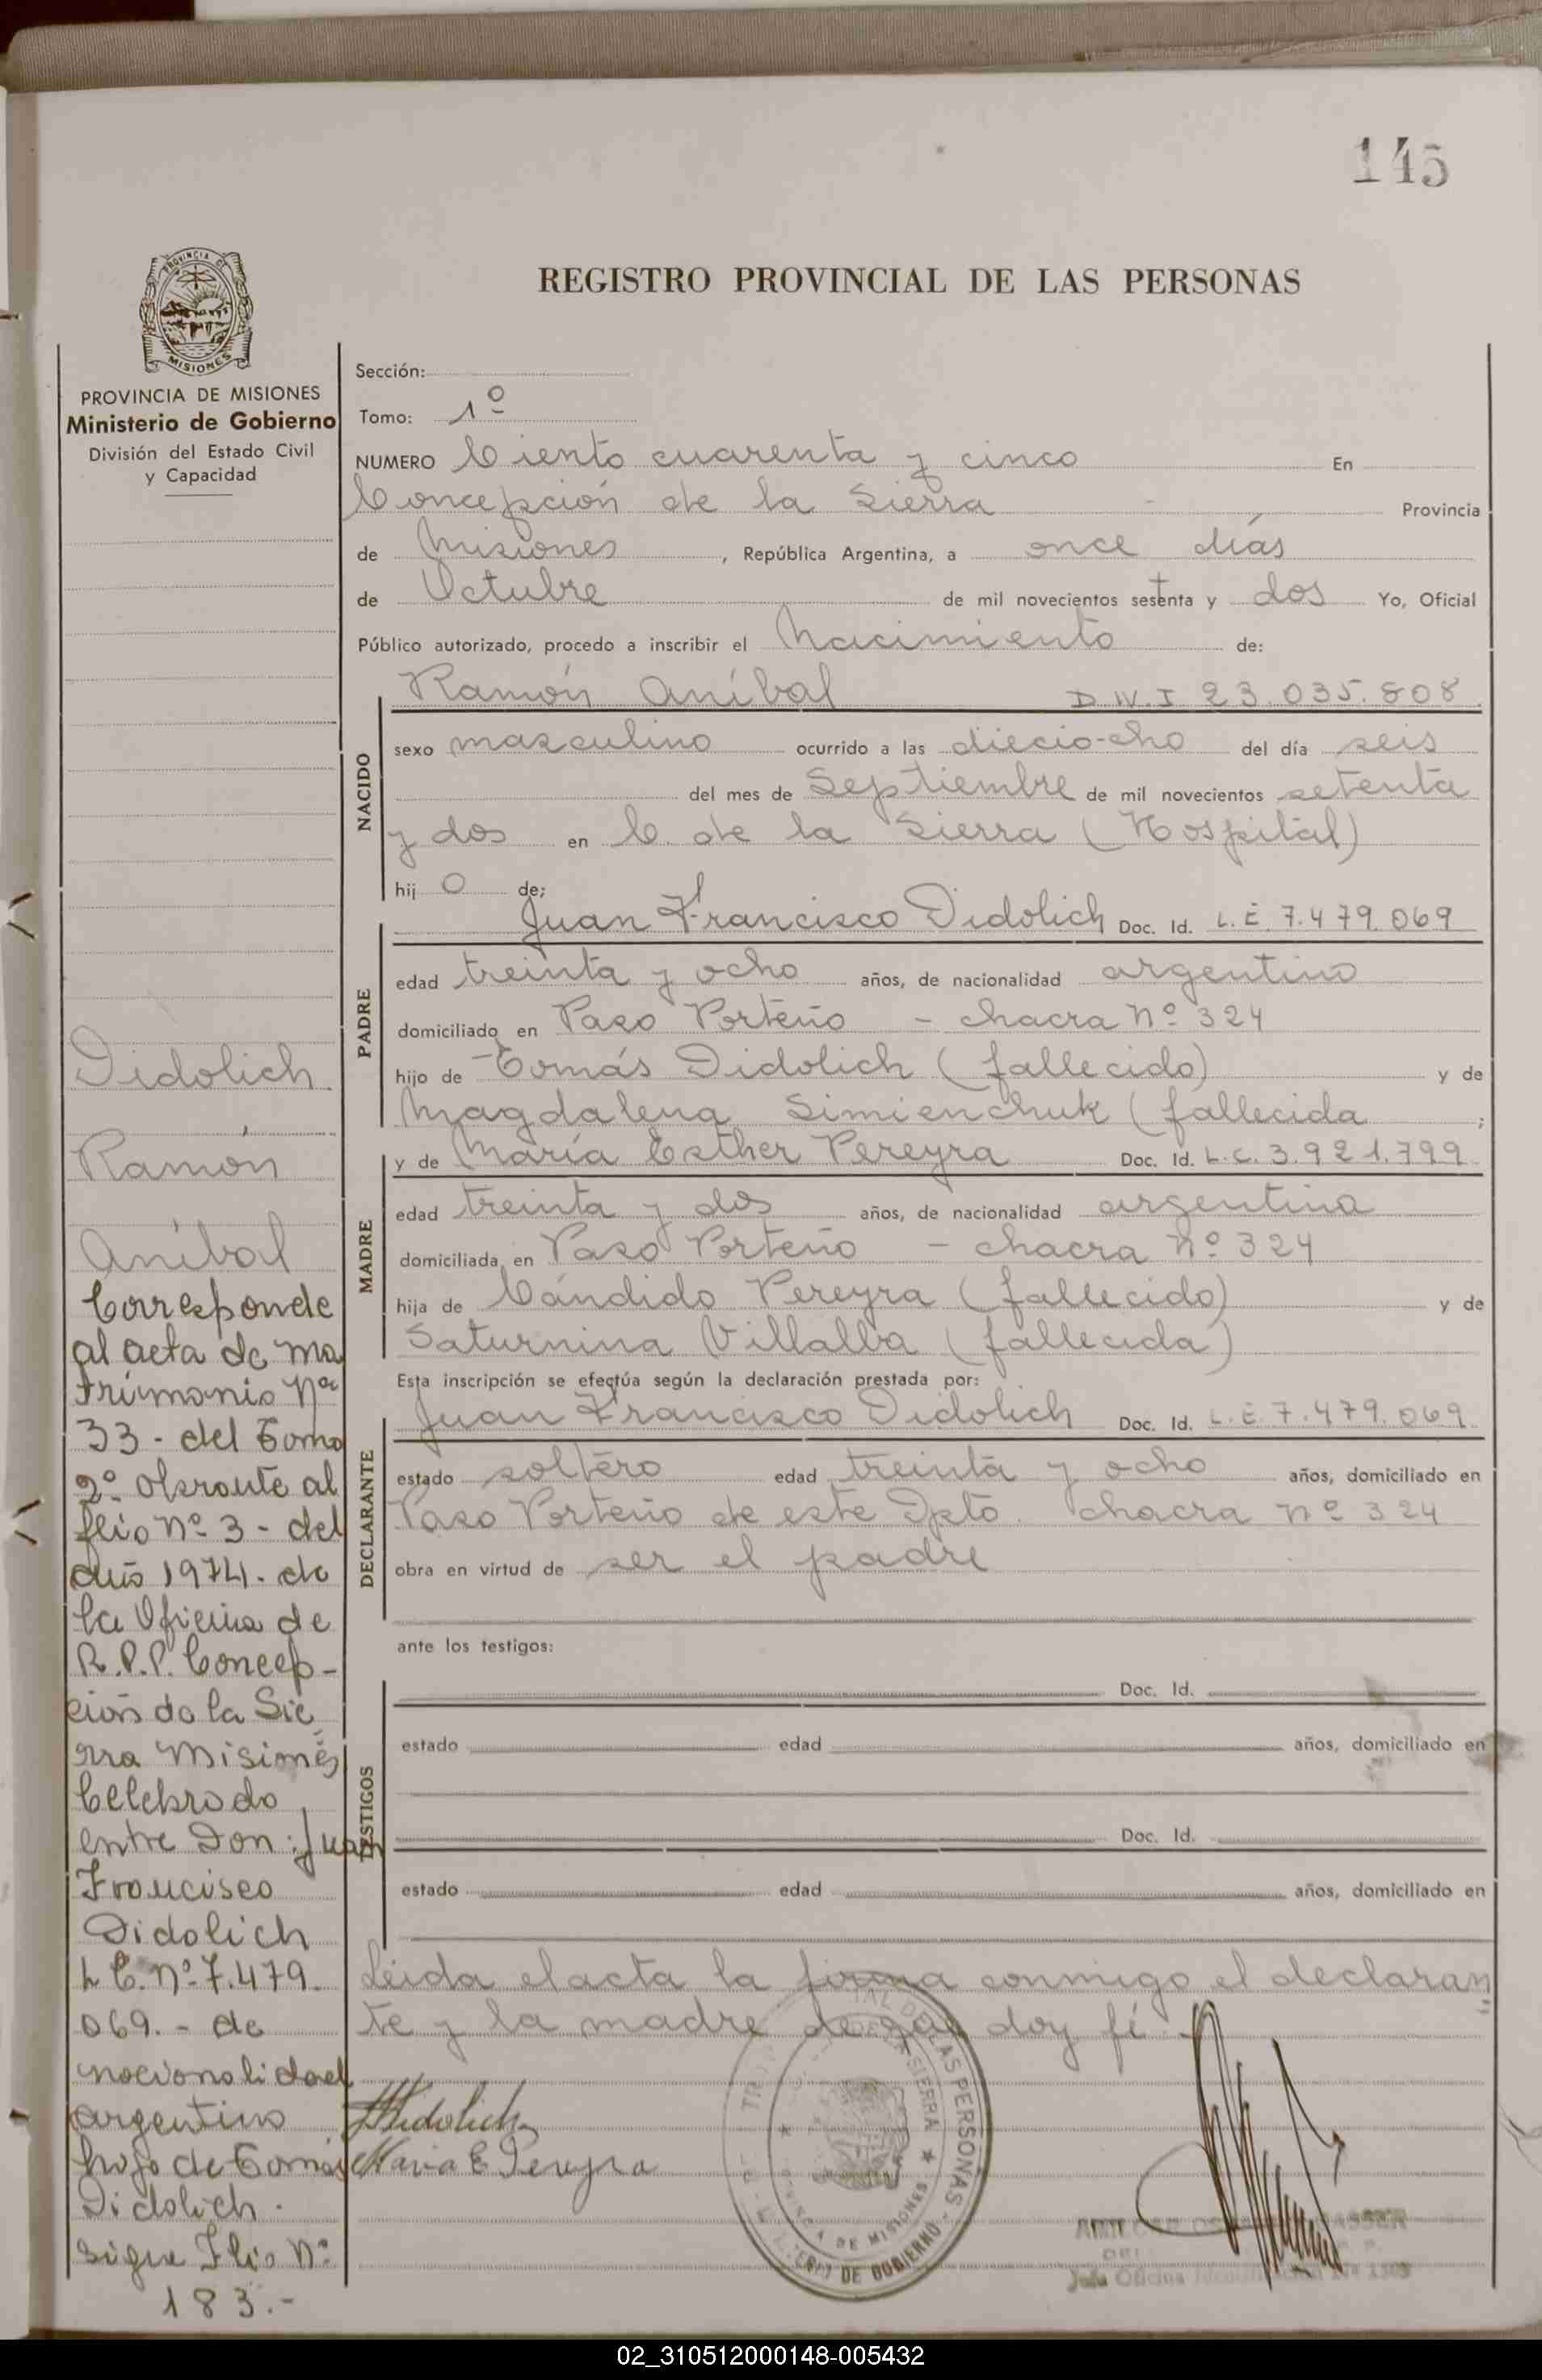 145
REGISTRO PROVINCIAL DE LAS PERSONAS
PROVINCIA DE
MISIONES
PROVINCIA DE MISIONES
Ministerio de Gobierno
División del Estado Civil
y Capacidad
Sección:
Tomo: 1º
NUMERO Ciento cuarenta y cinco En
Concepción de la Sierra Provincia
de Misiones, República Argentina, a once días
de Octubre de mil novecientos setenta y dos Yo, Oficial
Público autorizado, procedo a inscribir el Nacimiento de:
Ramón Aníbal D.N.I 23.035.808
NACIDO
sexo masculino ocurrido a las dieciocho del día seis
del mes de Septiembre de mil novecientos setenta
y dos en C. de la Sierra (Hospital)
hijo de;
Juan Francisco Didolich Doc. Id. L.E. 7.479.069
PADRE
edad treinta y ocho años, de nacionalidad argentino
domiciliado en Paso Porteño - chacra nº 324
hijo de Tomás Didolich (fallecido) y de
Magdalena Simienchuk (fallecida ;
y de María Esther Pereyra Doc. Id. L.C. 3.921.799
MADRE
edad treinta y dos años, de nacionalidad argentina
domiciliada en Paso Porteño - chacra nº 324
hija de Cándido Pereyra (fallecido) y de
Saturnina Villalba (fallecida)
Esta inscripción se efectúa según la declaración prestada por:
Juan Francisco Didolich Doc. Id. L.E. 7.479.069
DECLARANTE
estado soltero edad treinta y ocho años, domiciliado en
Paso Porteño de este Dpto. chacra nº 324
obra en virtud de ser el padre
ante los testigos:
TESTIGOS
Doc. Id.
estado edad años, domiciliado en
Doc. Id.
estado edad años, domiciliado en
Leida el acta la firma conmigo el declaran
te y la madre de que doy fé.-
Didolich
Maria E Pereyra
DE LAS PERSONAS
SIERRA
DE MISIONES
DE GOBIERNO
Jefe Oficina
Didolich
Ramón
Aníbal
Corresponde
al acta de ma
trimonio Nº
33 - del Tomo
2º. obrante al
flio nº 3 - del
año 1974. de
la Oficina de
R.P.P. Concep-
ción de la Sie
rra Misiones
Celebrado
entre Don: Juan
Francisco
Didolich
L E. nº 7.479.
069. - de
nacionalidad
argentino
hijo de Tomás
Didolich.
Sigue Flio Nº
183.-
02_310512000148-005432